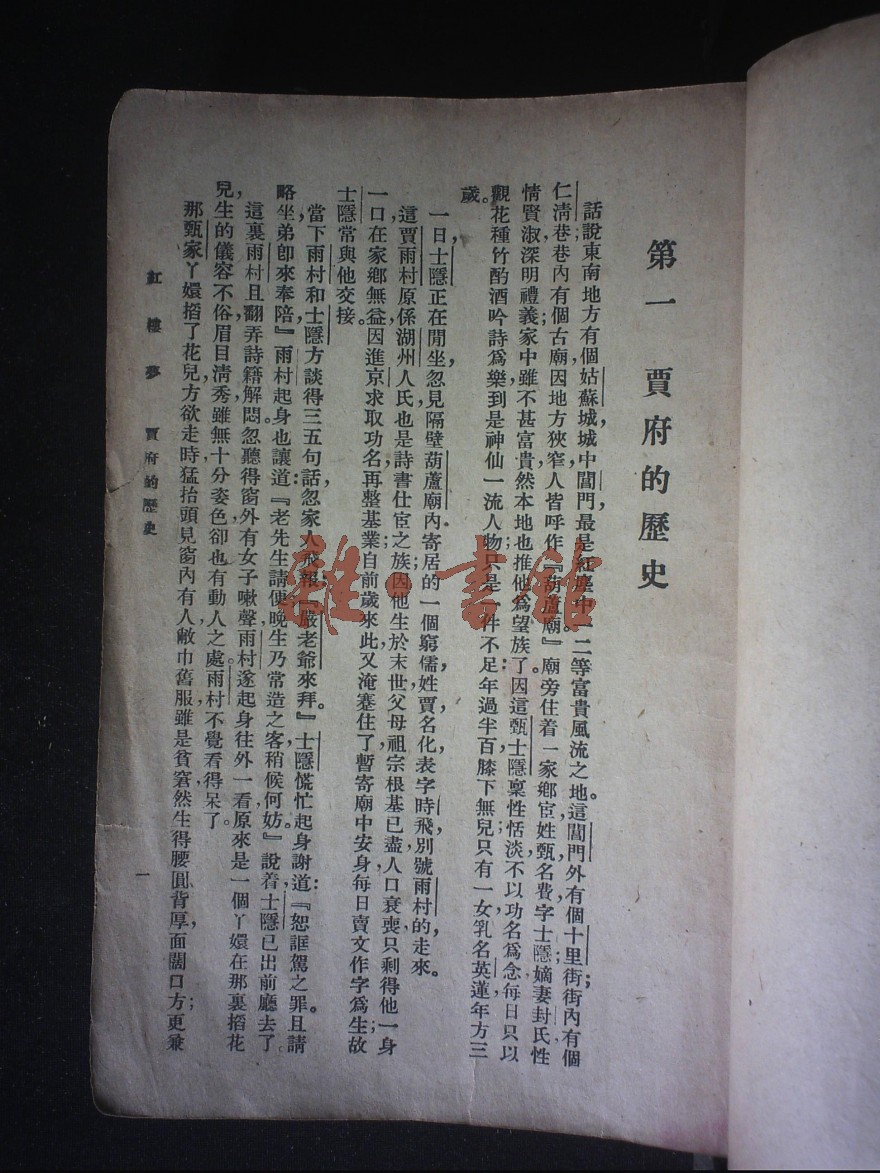 第一　賈府的歷史
話說東南地方有個姑蘇城，城中閶門，最是紅塵中一二等富貴風流之地。這閶門外有個十里街，街內有個
仁淸巷，巷內有個古廟，因地方狹窄，人皆呼作『葫蘆廟』。廟旁住着一家鄉宦，姓甄，名費，字士隱；嫡妻封氏，性
情賢淑，深明禮義；家中雖不甚富貴，然本地也推他爲望族了。因這甄士隱稟性恬淡，不以功名爲念，每日只以
觀花種竹，酌酒吟詩爲樂，到是神仙一流人物。只是一件不足：年過半百，膝下無兒；只有一女，乳名英蓮，年方三
歲。
一日，士隱正在閒坐，忽見隔壁葫蘆廟內寄居的一個窮儒，姓賈名化，表字時飛，別號雨村的走來。
這賈雨村原係湖州人氏，也是詩書仕宦之族；因他生於末世，父母祖宗根基已盡，人口衰喪，只剩得他一身
一口，在家鄉無益，因進京求取功名，再整基業。自前歲來此，又淹蹇住了，暫寄廟中安身，每日賣文作字爲生；故
士隱常與他交接。
當下雨村和士隱方談得三五句話，忽家人飛報：『嚴老爺來拜。』士隱慌忙起身謝道：『恕誆駕之罪。且請
略坐，弟卽來奉陪。』雨村起身也讓道：『老先生請便，晚生乃常造之客，稍候何妨。』說着，士隱已出前廳去了。
這裏雨村且翻弄詩籍解悶，忽聽得窗外有女子嗽聲，雨村遂起身往外一看，原來是一個丫嬛在那裏搯花
兒，生的儀容不俗，眉目淸秀，雖無十分姿色，卻也有動人之處。雨村不覺看得呆了。
那甄家丫嬛搯了花兒，方欲走時，猛抬頭見窗內有人，敝巾舊服，雖是貧窘，然生得腰圓背厚，面闊口方；更兼
紅樓夢　賈府的歷史
一
雜·書館